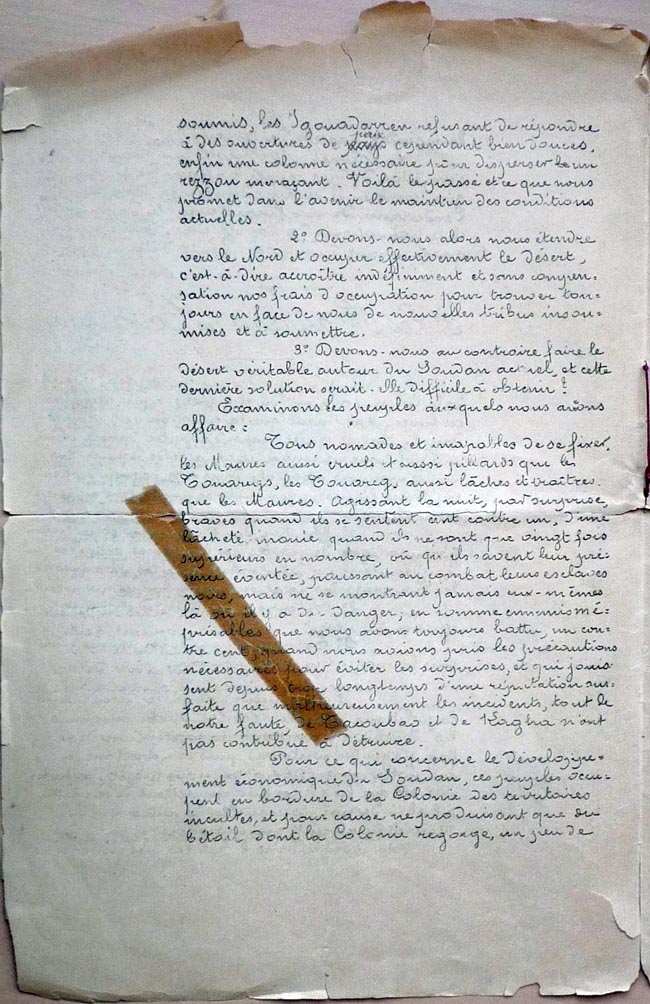 soumis, les Igouadarren refusant de répondre
à des ouvertures de paix cependant bien douces,
enfin une colonne nécessaire pour disperser un
rezzou menaçant. Voilà le passé et ce que nous
promet dans l'avenir le maintien des conditions
actuelles.
2° Devons-nous alors nous étendre
vers le Nord et occuper effectivement le désert,
c'est-à-dire accroître indéfiniment et sans compen-
sation nos frais d'occupation pour trouver tou-
jours en face de nous de nouvelles tribus insou-
mises et à soumettre.
3° Devons-nous au contraire faire le
désert véritable autour du Soudan actuel, et cette
dernière solution serait-elle difficile à obtenir?
Examinons les peuples auxquels nous avons
affaire:
Tous nomades et incapables de se fixer,
les Maures aussi cruels et aussi pillards que les
Touaregs, les Touaregs aussi lâches et traîtres
que les Maures. Agissant la nuit, par surprise,
braves quand ils se sentent cent contre un, d'une
lâcheté inouïe quand ils ne sont que vingt fois
supérieurs en nombre, où qu'ils savent leur pré-
sence éventée, poussant au combat leurs esclaves
noirs, mais ne se montrant jamais eux-mêmes
là où il y a de danger, en somme ennemis mé-
prisables que nous avons toujours battu, un con-
tre cent, quand nous avions pris les précautions
nécessaires pour éviter les surprises, et qui jouis-
sent depuis trop longtemps d'une réputation sur-
faite que malheureusement les incidents, tout de
notre faute, de Tacoubao et de n'ont
pas contribué à détruire.
Pour ce qui concerne le développe-
ment économique du Soudan, ces peuples occu-
pent en bordure de la Colonie des territoires
incultes, et pour cause ne produisant que du
bétail dont la Colonie regorge, un peu de